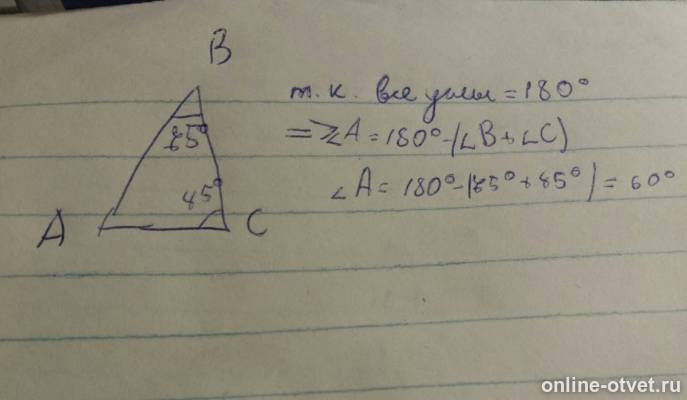 B
т.к. все углы = 180°
=> ∠A = 180° - (∠B + ∠C)
∠A = 180° - (85° + 85°) = 60°
85°
A
C
online-otvet.ru